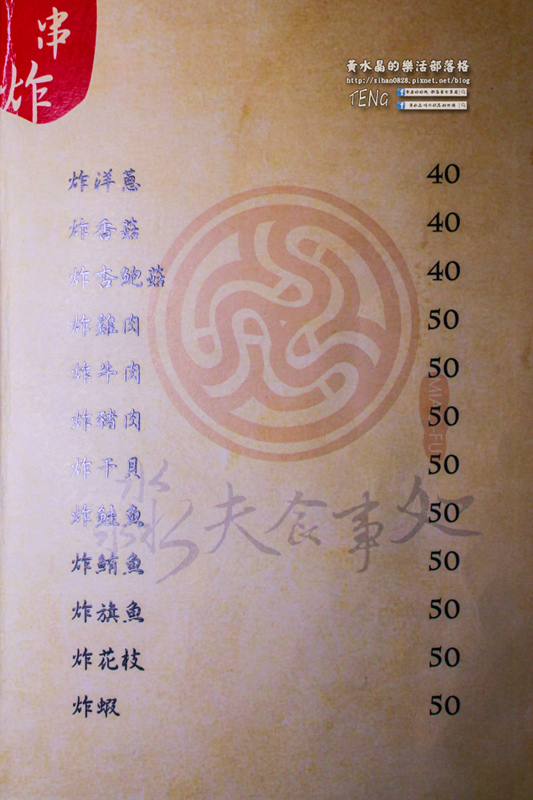 串
炸
黃水晶的樂活部落格
http://xihao0828.pixnet.net/blog
TENG
炸洋蔥 40
炸香菇 40
炸杏鮑菇 40
炸雞肉 50
炸牛肉 50
炸豬肉 50
炸干貝 50
炸鮭魚 50
炸鮪魚 50
炸旗魚 50
炸花枝 50
炸蝦 50
淼夫食事処